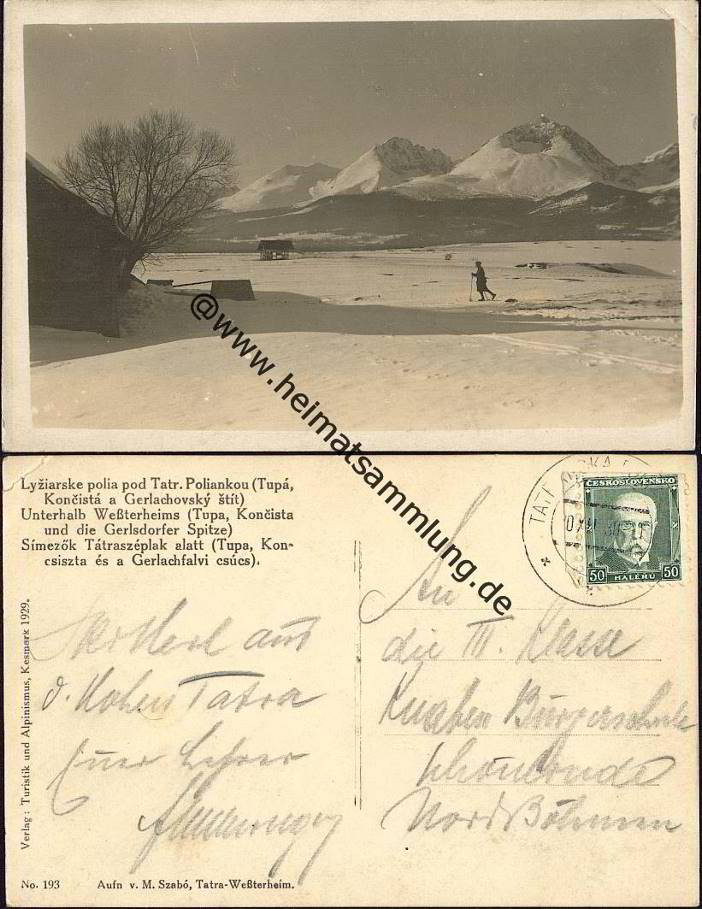 @www.heimatsammlung.de
Lyžiarske polia pod Tatr. Poliankou (Tupá,
Končistá a Gerlachovský štít)
Unterhalb Weßterheims (Tupa, Končista
und die Gerlsdorfer Spitze)
Símezők Tátraszéplak alatt (Tupa, Kon-
csiszta és a Gerlachfalvi csúcs).
ČESKOSLOVENSKO
50 50
HALÉŘŮ
TATR
An
die III. Klasse
Knaben Bürgerschule
Nord Böhmen
aus
d. Hohen Tatra
Euer Lehrer
Verlag: Turistik und Alpinismus, Kesmark 1929.
No. 193 Aufn v. M. Szabó, Tatra-Weßterheim.